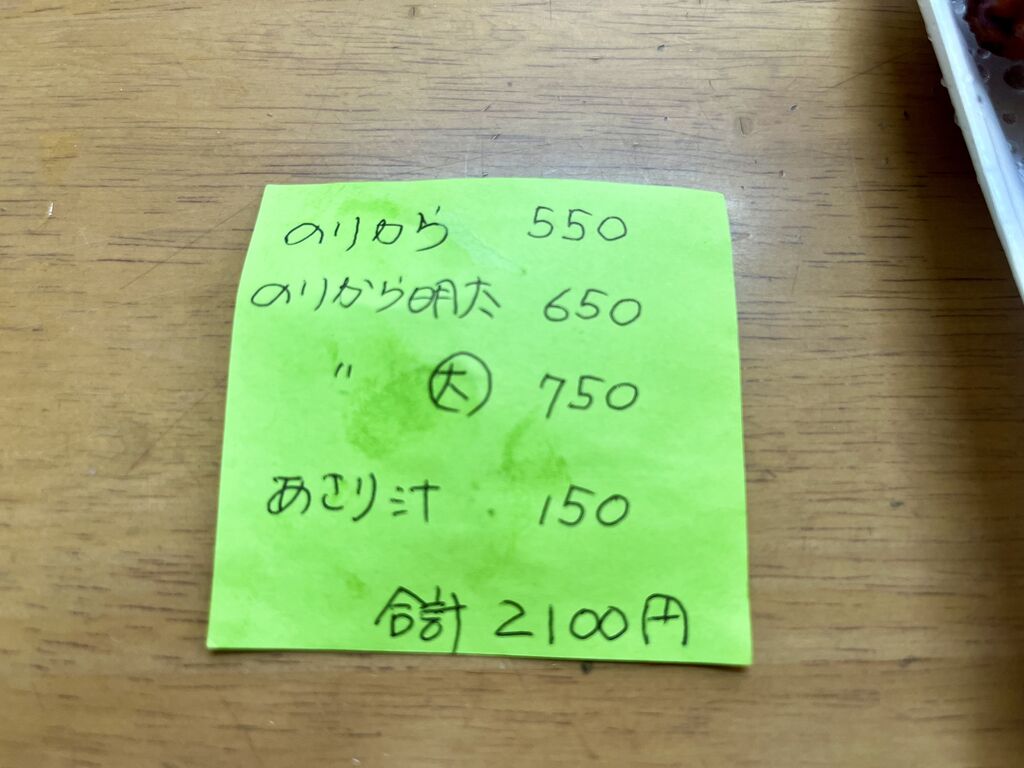 のりから 550
のりから明太 650
〃 ㊅ 750
あさり汁 150
合計 2100円